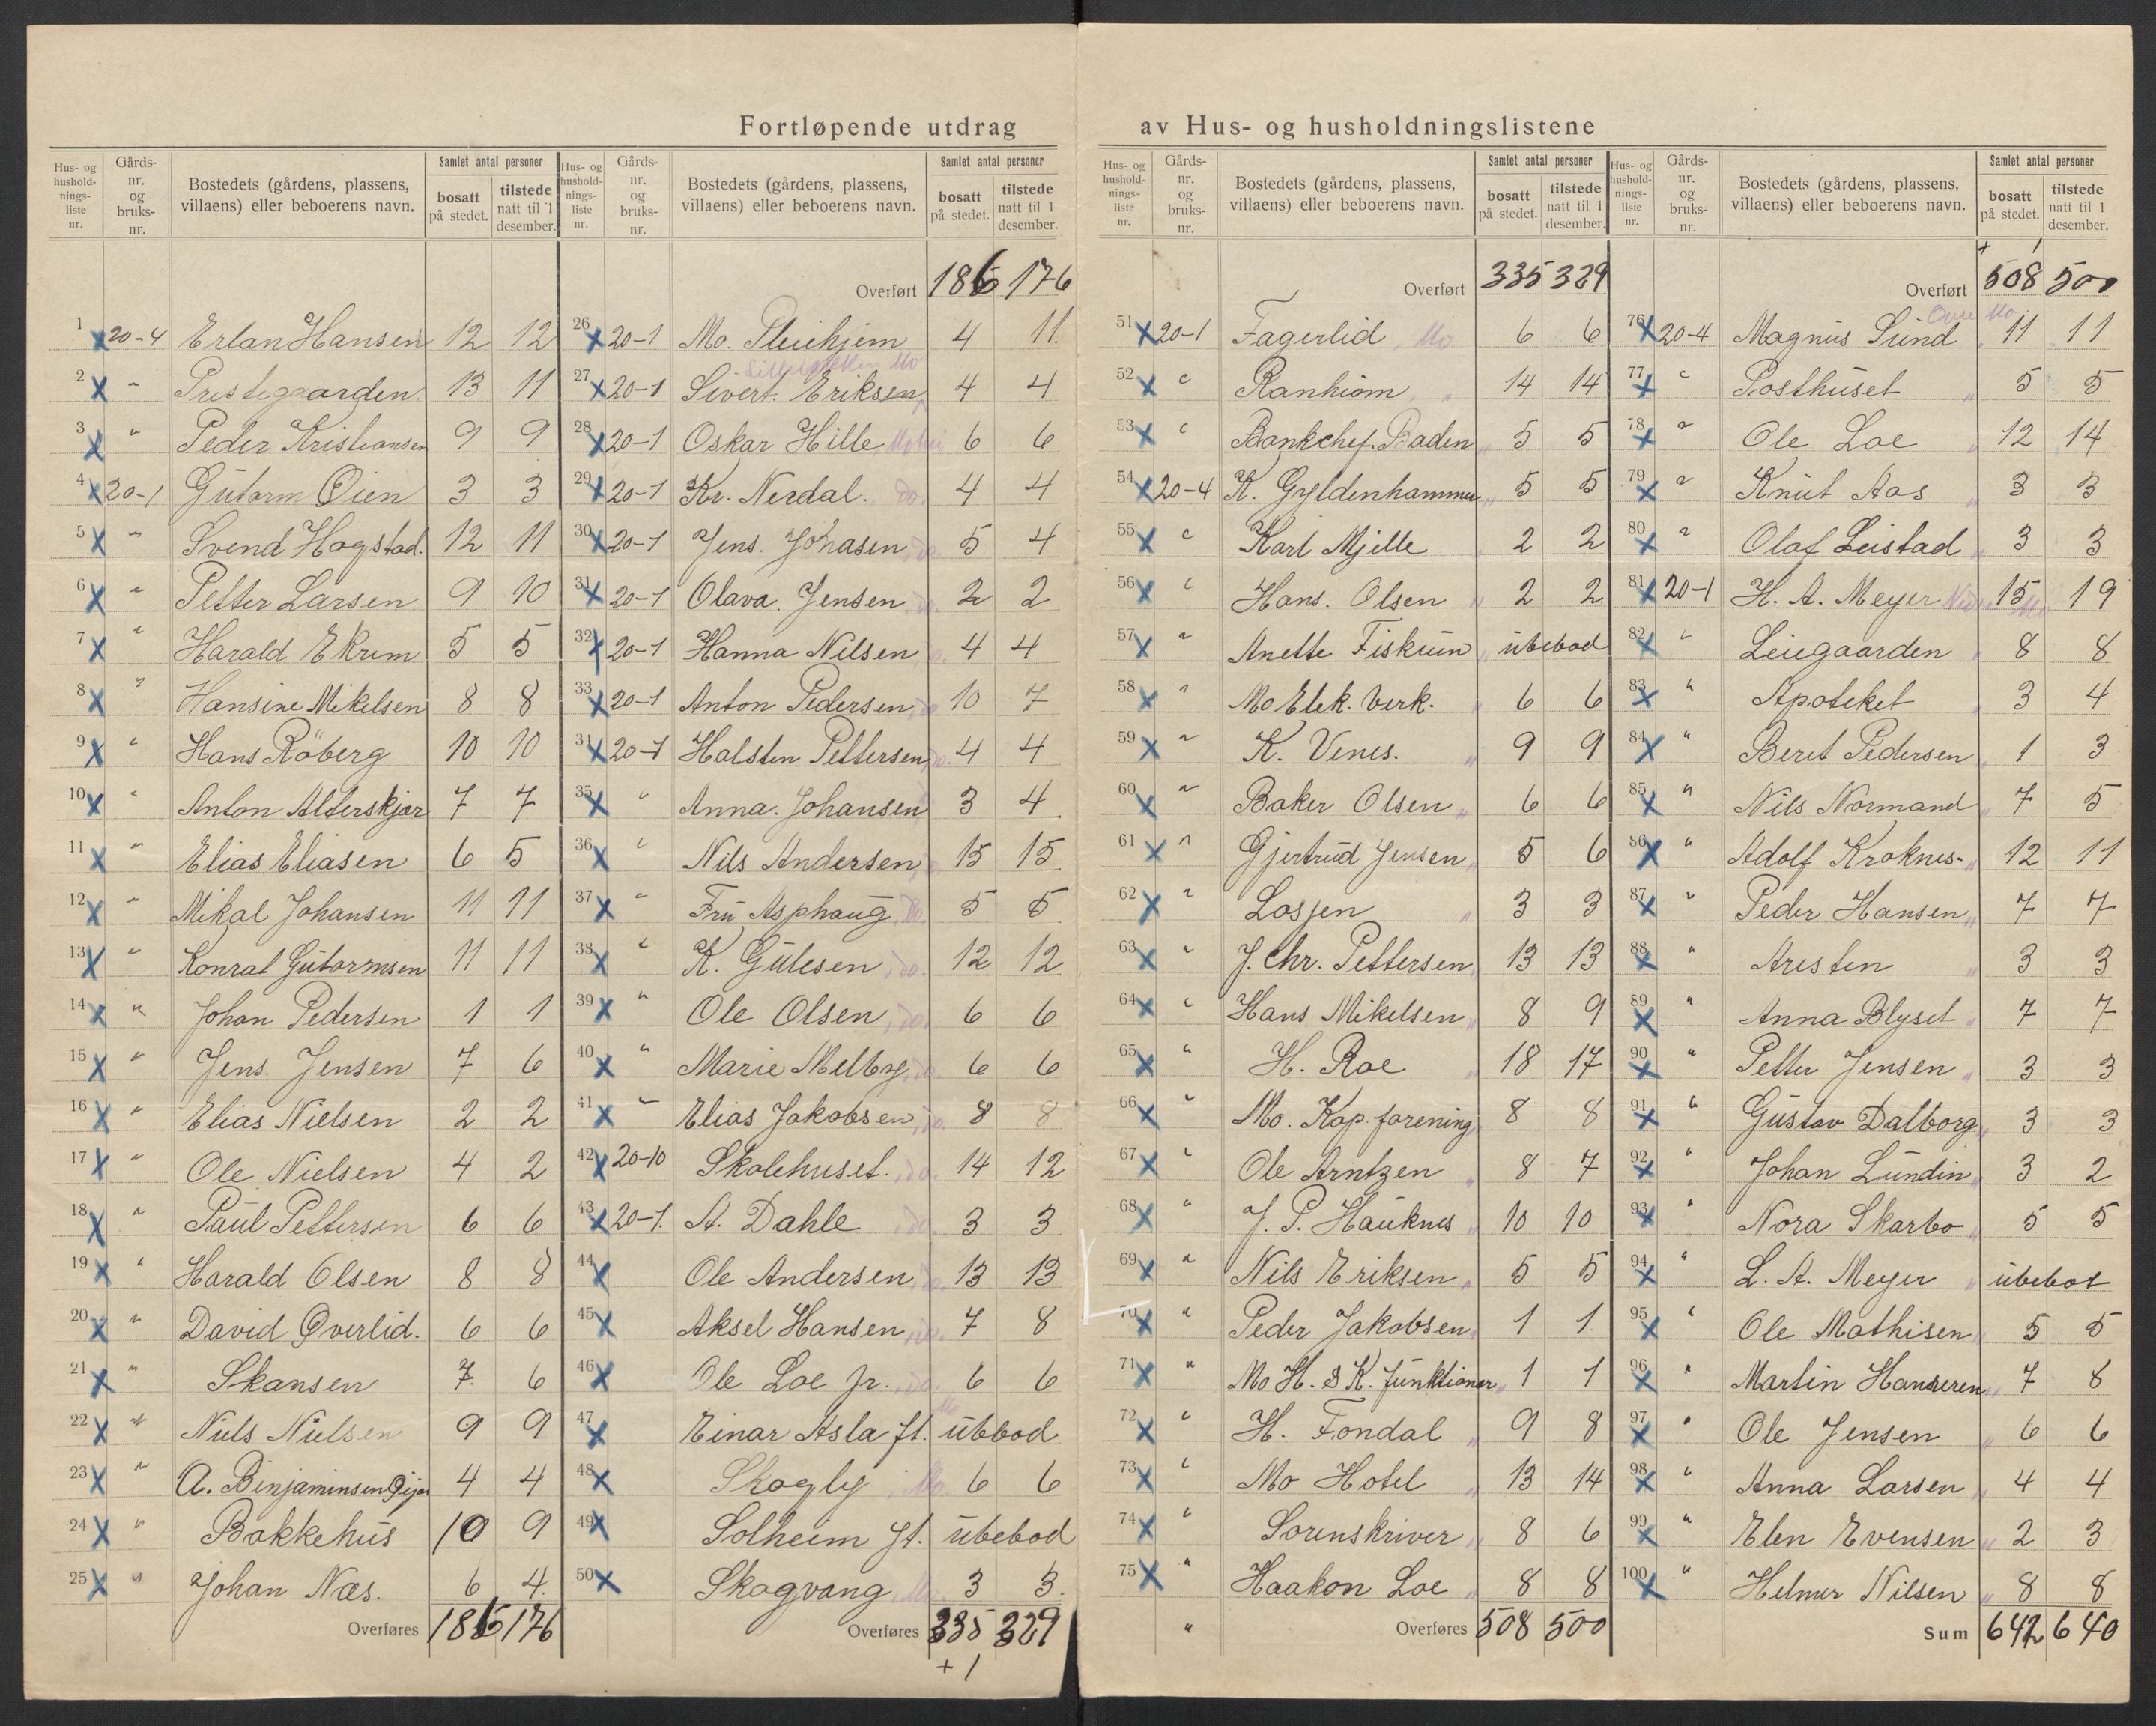 Fortløpende utdrag av Hus- og husholdningslistene
Hus- og hushold-nings-liste nr. Gårds-nr. og bruks-nr. Bostedets (gårdens, plassens, villaens) eller beboerens navn. Samlet antal personer bosatt på stedet. tilstede natt til 1 desember.
1 20-4 Erlan Hansen 12 12
2 " Prestegaarden 13 11
3 " Peder Kristiansen 9 9
4 20-1 Gutorm Øien 3 3
5 " Svend Hagstad. 12 11
6 " Petter Larsen 9 10
7 " Harald Ekrem 5 5
8 " Hansine Mikelsen 8 8
9 " Hans Röberg 10 10
10 " Anton Alterskjær 7 7
11 " Elias Eliasen 6 5
12 " Mikal Johansen 11 11
13 " Konrat Gutormsen 11 11
14 " Johan Pedersen 1 1
15 " Jens. Jensen 7 6
16 " Elias Nielsen 2 2
17 " Ole Nielsen 4 2
18 " Paul Pettersen 6 6
19 " Harald Olsen 8 8
20 " David Øverlid. 6 6
21 " Skansen 7 6
22 " Niels Nielsen 9 9
23 " A. Binjaminsen 4 4
24 " Bakkehus 10 9
25 " Johan Næs. 6 4.
Overføres 185 176
Hus- og hushold-nings-liste nr. Gårds-nr. og bruks-nr. Bostedets (gårdens, plassens, villaens) eller beboerens navn. Samlet antal personer bosatt på stedet. tilstede natt til 1 desember.
Overført 186 176
26 20-1 Mo. Pleiehjem 4 11.
27 20-1 Sivert. Eriksen 4 4
28 20-1 Oskar Hille 6 6
29 20-1 Kr. Nerdal. do. 4 4
30 20-1 Jens. Johasen do. 5 4
31 20-1 Olava. Jensen do. 2 2
32 20-1 Hanna Nilsen do. 4 4
33 20-1 Anton Pedersen do 10 7
34 20-1 Halsten Pettersen do. 4 4
35 " Anna. Johansen 3 4
36 " Nils Andersen 15 15
37 " Fru Asphaug do. 5 5
38 " K. Gulesen do. 12 12
39 " Ole Olsen do. 6 6
40 " Marie Melby do. 6 6
41 " Elias Jakobsen do. 8 8
42 20-10 Skolehuset. do. 14 12
43 20-1. A. Dahle do 3 3
44 Ole Andersen do. 13 13
45 Aksel Hansen do. 7 8
46 Ole Loe jr. do. 6 6
47 Einar Asla ft. ubbod
48 Skogly Mo. 6 6
49 Solheim ft. ubebod
50 Skogvang Mo 3 3.
Overføres 335 329
+ 1
Hus- og hushold-nings-liste nr. Gårds-nr. og bruks-nr. Bostedets (gårdens, plassens, villaens) eller beboerens navn. Samlet antal personer bosatt på stedet. tilstede natt til 1 desember.
Overført 335 329
51 20-1 Fagerlid Mo 6 6
52 " Ranheim " 14 14
53 " Bankchef. Baden " 5 5
54 20-4 K. Gyldenhammer " 5 5
55 " Karl Mjelle 2 2
56 " Hans. Olsen " 2 2
57 " Anette Fiskum " ubebod
58 " Mo Elek. Verk. " 6 6
59 " K. Venes. " 9 9
60 " Baker Olsen " 6 6
61 " Gjertrud Jensen " 5 6
62 " Losjen " 3 3
63 " J. Chr. Pettersen " 13 13
64 " Hans Mikelsen " 8 9
65 " H. Roe " 18 17
66 " Mo. Kop. forening 8 8
67 " Ole Arntzen " 8 7
68 " J. P. Hauknes " 10 10
69 " Nils Eriksen " 5 5
70 " Peder Jakobsen " 1 1.
71 " Mo H. & K. funktionær " 1 1
72 " H. Fondal " 9 8
73 " Mo Hotel " 13 14
74 " Sorenskriver " 8 6
75 " Haakon Loe " 8 8
" " Overføres 508 500
Hus- og hushold-nings-liste nr. Gårds-nr. og bruks-nr. Bostedets (gårdens, plassens, villaens) eller beboerens navn. Samlet antal personer bosatt på stedet. tilstede natt til 1 desember.
+ 1
Overført 508 500
Mo
76 20-4 Magnus Sund 11 11
77 " Posthuset " 5 5
78 " Ole Loe " 12 14
79 " Knut Aas " 3 3
80 " Olaf Leistad " 3 3
81 20-1 H. A. Meyer 15 19
82 " Leiegaarden " 8 8
83 " Apoteket " 3 4
84 " Beret Pedersen " 1 3
85 " Nils Normand " 7 5
86 " Adolf Kroknes- " 12 11
87 " Peder Hansen " 7 7
88 " Aresten " 3 3
89 " Anna Blyset " 7 7
90 " Petter Jensen " 3 3
91 " Gustav Dalborg " 3 3
92 " Johan Lundin " 3 2
93 " Nora Skarbo " 5 5
94 " L. A. Meyer " ubebot
95 " Ole Mathisen " 5 5
96 " Martin Hanseren " 7 8
97 " Ole Jensen " 6 6
98 " Anna Larsen " 4 4
99 " Elen Evensen " 2 3
100 " Helmer Nilsen " 8 8
Sum 642 640